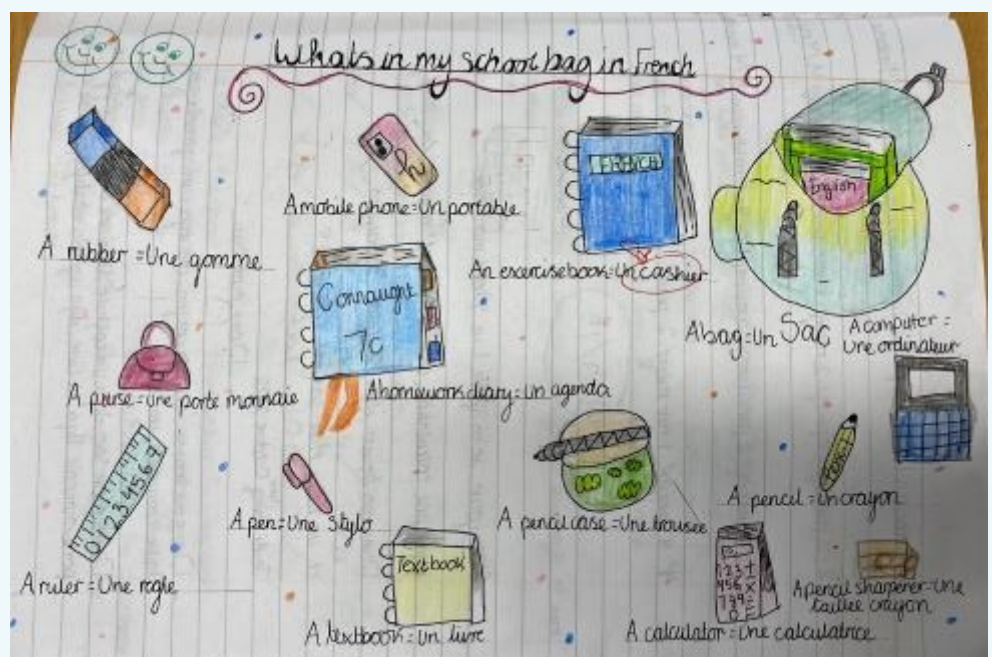 Whats in my school bag in French
A rubber = Une gomme
A mobile phone = Un portable
FRENCH
An exercise book = Un cashier
English
A bag = Un Sac
A computer =
Une ordinateur
A purse = une porte monnaie
Connaught
7c
A homework diary = un agenda
0123456789
A ruler = Une rogle
A pen = Une Stylo
A pencil case = Une trousee
A pencil = un crayon
Textbook
A textbook = un livre
123+
456×
A calculator = Une calculatrice
A pencil sharpener = Une
taillee crayon